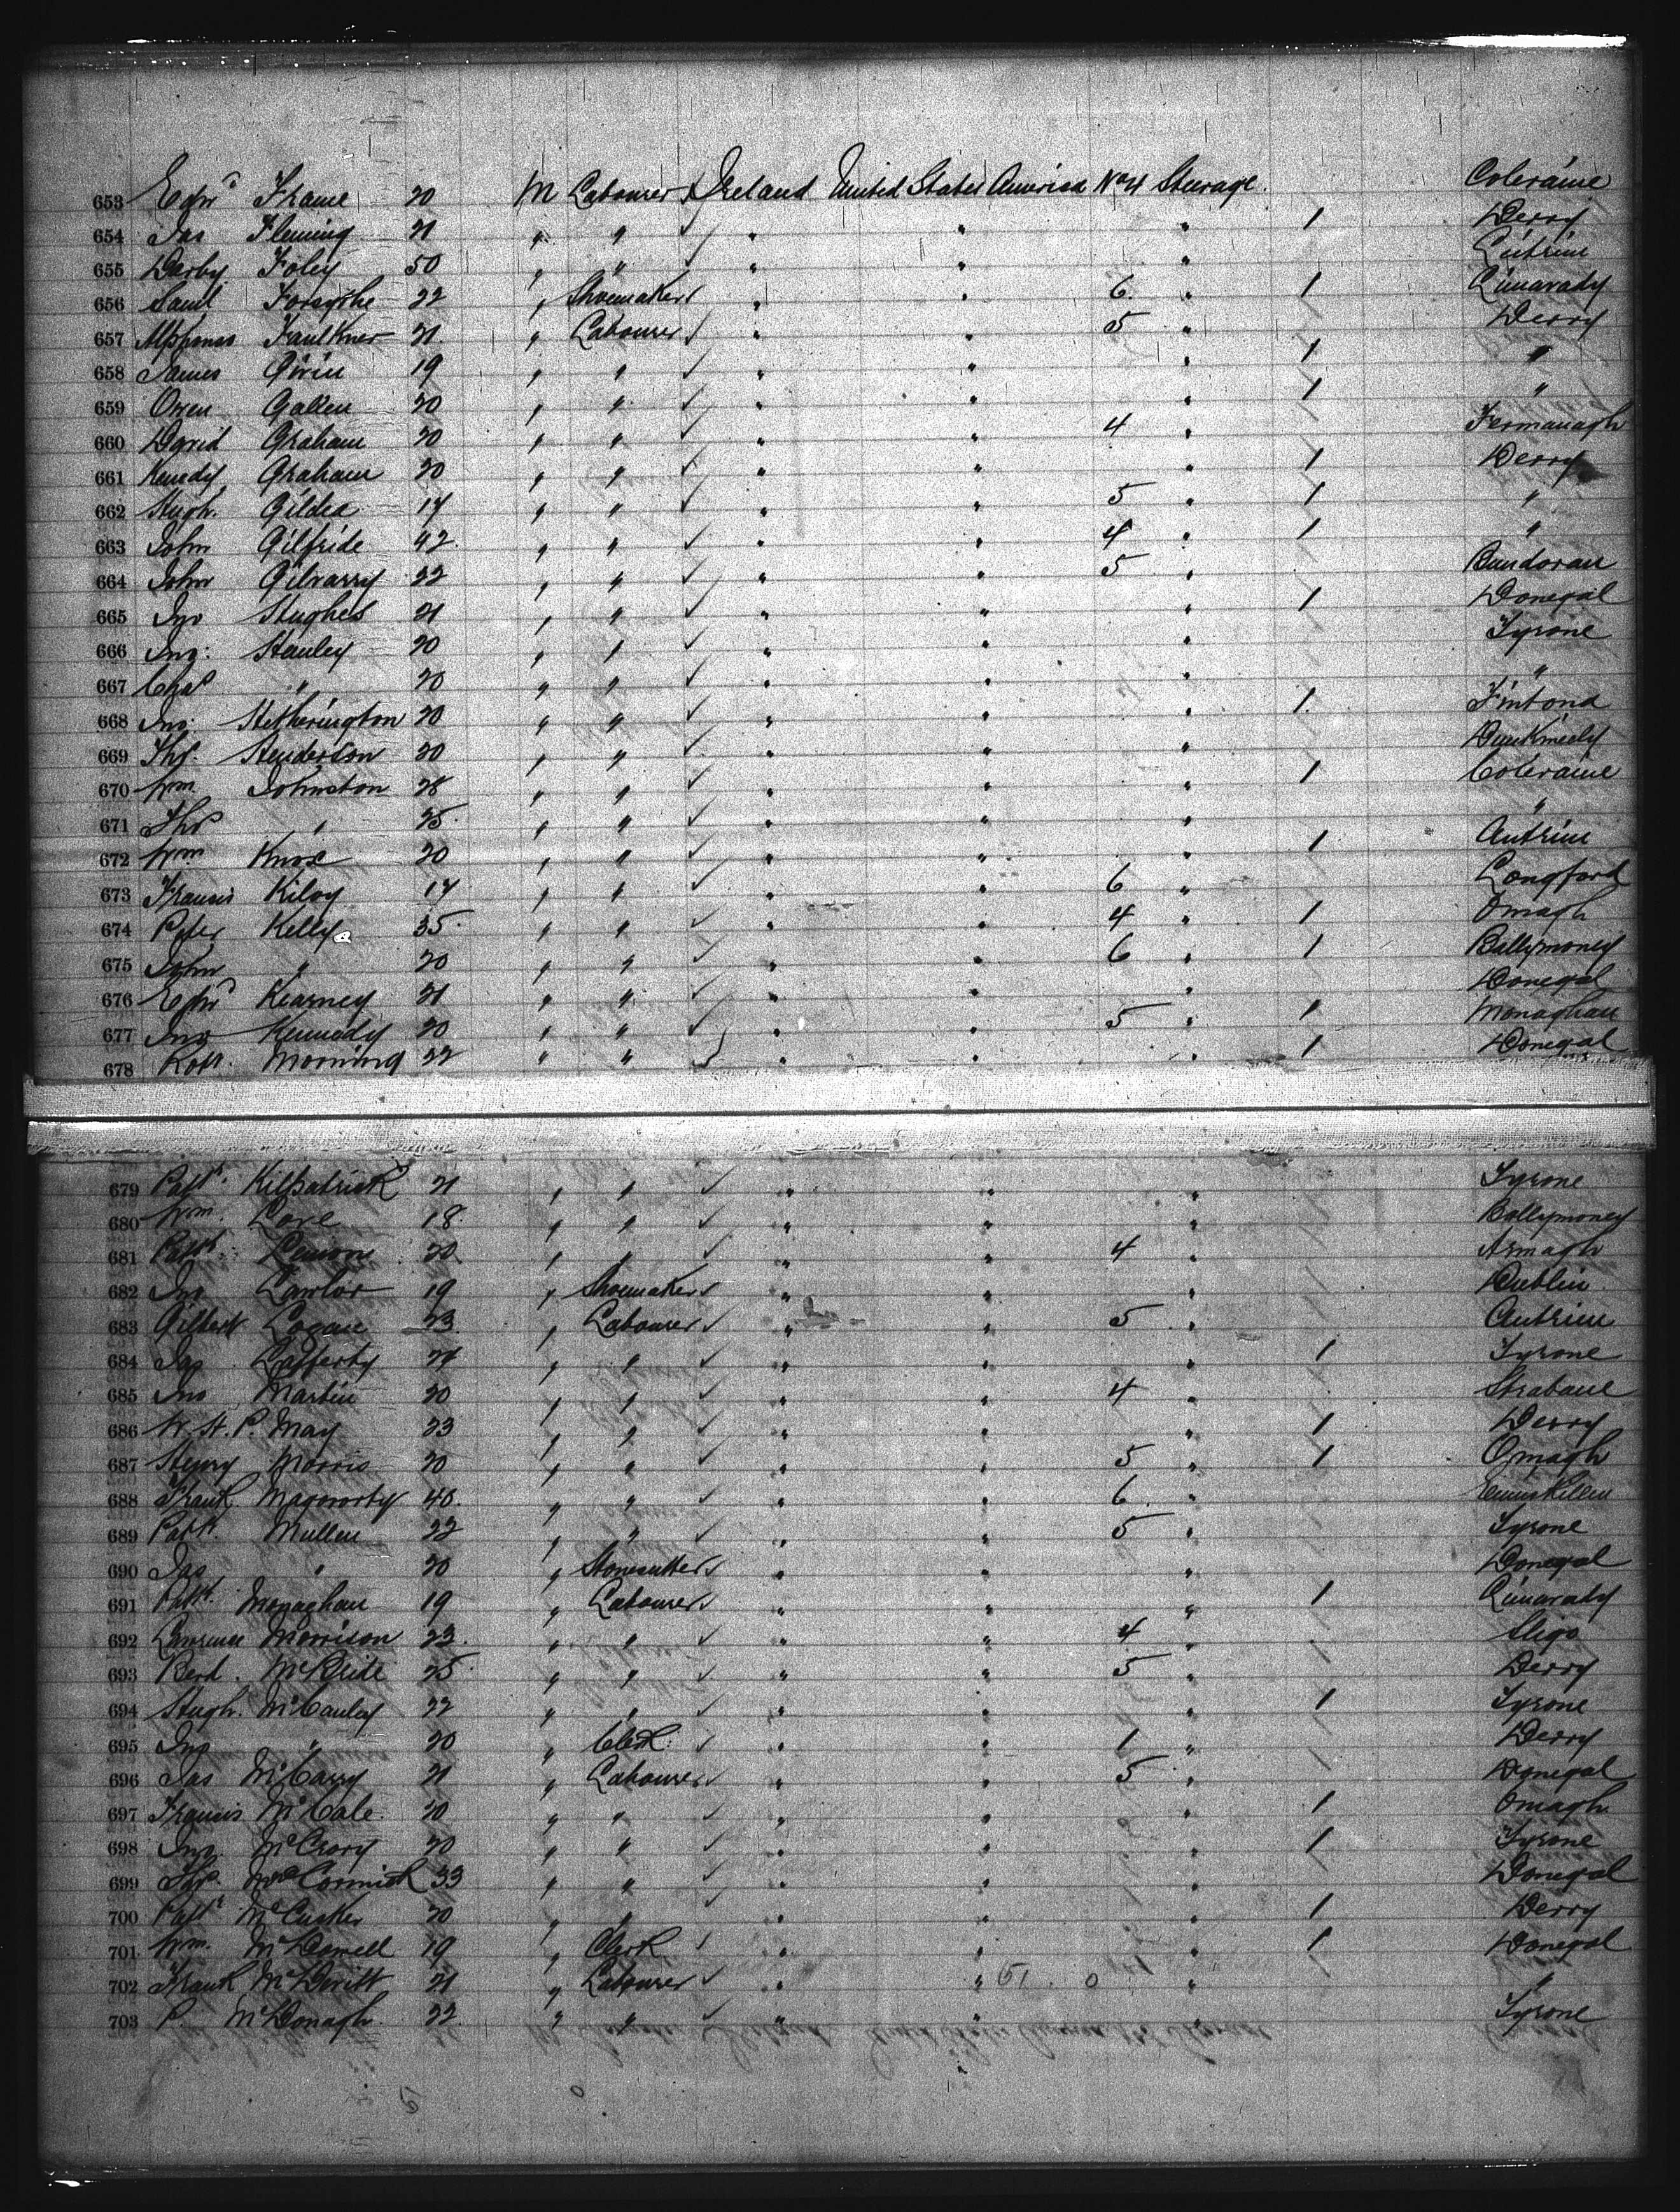 653 Edwd Frame 20 M Labourer Ireland United States America No 4 Steerage. Coleraine
654 Jas Fleming 21 " " ✓ " " " 1 Derry
655 Darby Foley 50 " " ✓ " " " Leitrim
656 Saml Forsythe 22 " Shoemaker ✓ " " 6 " 1 Limavady
657 Alphonso Faulkner 21 " Labourer ✓ " " 5 " Derry
658 James Givin 19 " " ✓ " " " 1 "
659 Owen Gallen 20 " " ✓ " " " 1 "
660 David Graham 20 " " ✓ " " 4 " Fermanagh
661 Kenedy Graham 20 " " ✓ " " " 1 Derry
662 Hugh. Gildea 17 " " ✓ " " 5 " 1 "
663 John Gilfride 42. " " ✓ " " 4 " 1 "
664 John Gilvarry 22 " " ✓ " " 5 " Bundoran
665 Jno Hughes 21 " " ✓ " " " 1 Donegal
666 Jno: Hanley 20 " " ✓ " " " Tyrone
667 Chas " 20 " " ✓ " " " "
668 Jno: Hetherington 20 " " ✓ " " " 1. Fintona
669 Thos. Henderson 20 " " ✓ " " " Dunkineely
670 Wm. Johnston 28 " " ✓ " " " 1 Coleraine
671 Thos " 25. " " ✓ " " " "
672 Wm Knox 20 " " ✓ " " " 1 Antrim
673 Francis Kiloy 17 " " ✓ " " 6 " Longford
674 Peter Kelly 35. " " ✓ " " 4 " 1 Omagh
675 John " 20 " " ✓ " " 6 " 1 Ballymoney
676 Edwd Kearney 21 " " ✓ " " " Donegal
677 Jno Kennedy 20 " " ✓ " " 5 " 1 Monaghan
678 Robt. Morning 22 " " ✓ " " " 1 Donegal
679 Patk. Kilpatrick 21 " " ✓ " " " Tyrone
680 Wm. Love 18. " " ✓ " " " Ballymoney
681 Patk. Lemon 20. " " ✓ " " 4 " Armagh
682 Jno Lawlor 19 " Shoemaker ✓ " " " Dublin
683 Gilbert Logan 23 " Labourer ✓ " " 5 " Antrim
684 Jas Lafferty 24 " " ✓ " " " 1 Tyrone
685 Jno Martin 20 " " ✓ " " 4 " Strabane
686 W. H. P. May 23 " " ✓ " " " 1 Derry
687 Henry Morris 20 " " ✓ " " 5 " 1 Omagh
688 Frank. Magororty 40. " " ✓ " " 6 " Enniskillen
689 Patk. Mullen 22 " " ✓ " " 5 " Tyrone
690 Jas " 20 " Stonecutter ✓ " " " Donegal
691 Patk. Monaghan 19 " Labourer ✓ " " " 1 Limavady
692 Lawrence Morrison 23. " " ✓ " " 4 " Sligo
693 Berd. McBride 25. " " ✓ " " 5 " Derry
694 Hugh. McCauley 22 " " ✓ " " " 1 Tyrone
695 Jno " 20 " Clerk. ✓ " " 1 " Derry
696 Jas McCarry 21 " Labourer ✓ " " 5 " Donegal
697 Francis McCale. 20 " " ✓ " " " 1 Omagh
698 Jno. McCrory 20 " " ✓ " " " 1 Tyrone
699 Thos. McCormick 33 " " ✓ " " " Donegal
700 Patk McCusker 20 " " ✓ " " " 1 Derry
701 Wm. McDowell 19 " Clerk ✓ " " " 1 Donegal
702 Frank McDevitt 21 " Labourer ✓ " " 51. 0 " "
703 P. McDonagh. 22. " " ✓ " " " Tyrone